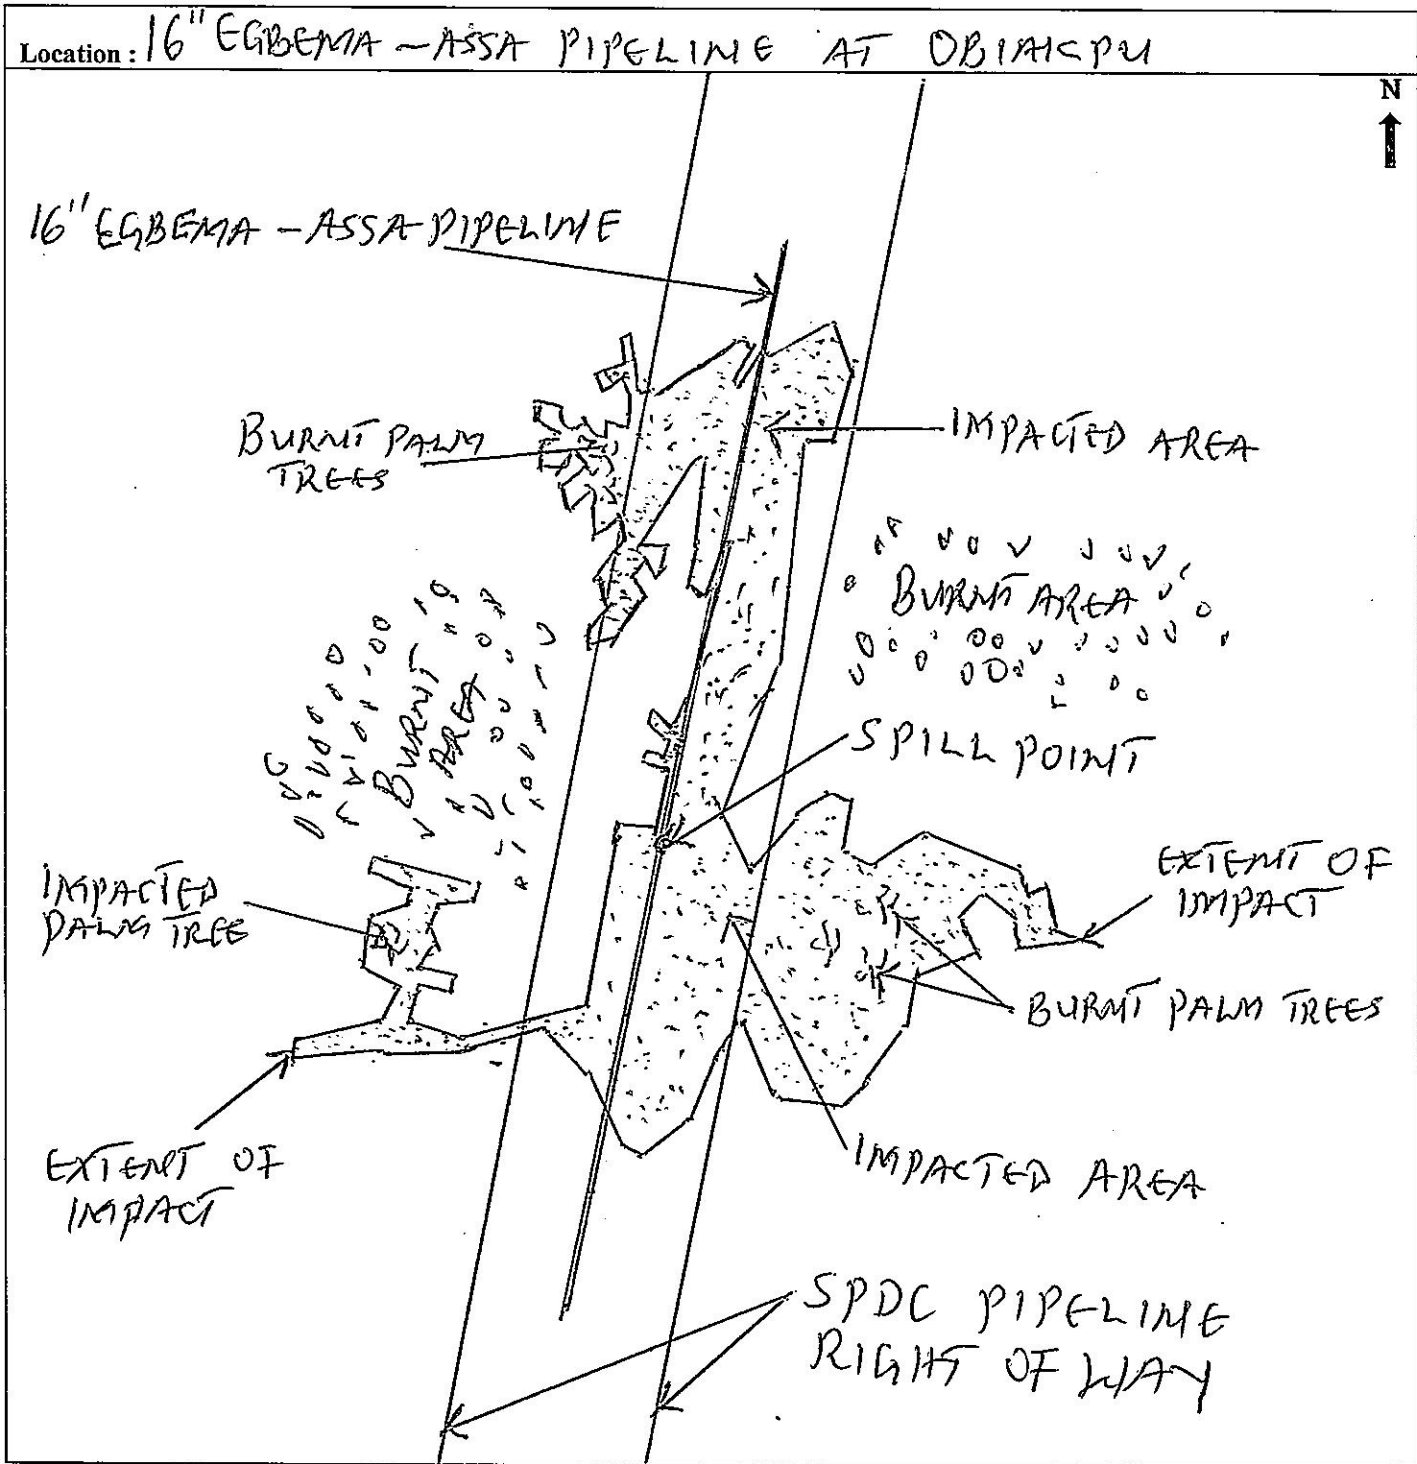 Location : 16" EGBEMA – ASSA PIPELINE AT OBIAKPU
N
16" EGBEMA – ASSA PIPELINE
BURNT PALM
TREES
IMPACTED AREA
BURNT AREA
BURNT
AREA
SPILL POINT
IMPACTED
PALM TREE
EXTENT OF
IMPACT
BURNT PALM TREES
EXTENT OF
IMPACT
IMPACTED AREA
SPDC PIPELINE
RIGHT OF WAY